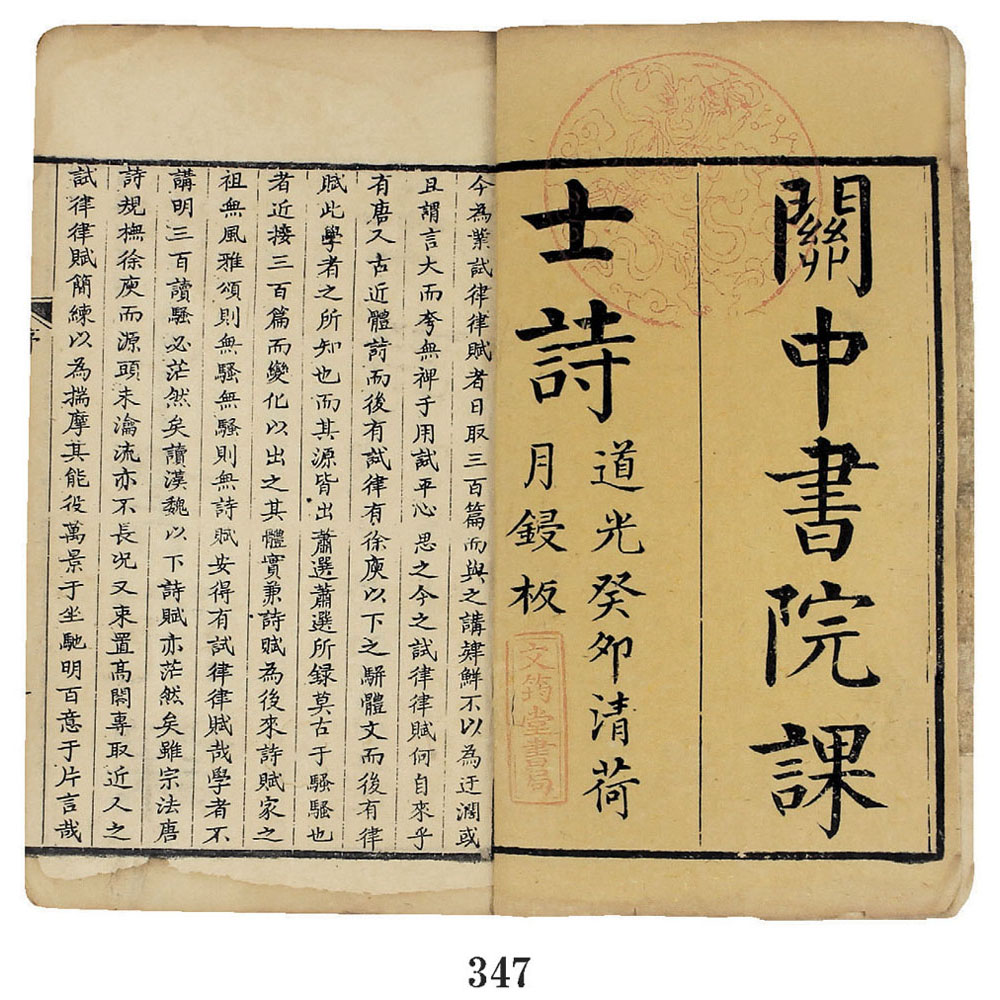 關中書院課
士詩
道光癸卯清荷
月鋟板
文筠堂書局
今為業試律律賦者日取三百篇而與之講肄鮮不以為迂濶或
且謂言大而夸無裨于用試平心思之今之試律律賦何自來乎
有唐又古近體詩而後有試律有徐庾以下之駢體文而後有律
賦此學者之所知也而其源皆出蕭選蕭選所録莫古于騷騷也
者近接三百篇而變化以出之其體實兼詩賦為後來詩賦家之
祖無風雅頌則無騷無騷則無詩賦安得有試律律賦哉學者不
講明三百讀騷必茫然矣讀漢魏以下詩賦亦茫然矣雖宗法唐
詩規橅徐庾而源頭未瀹流亦不長况又束置高閣專取近人之
試律律賦簡練以為揣摩其能役萬景于坐馳明百意于片言哉
347